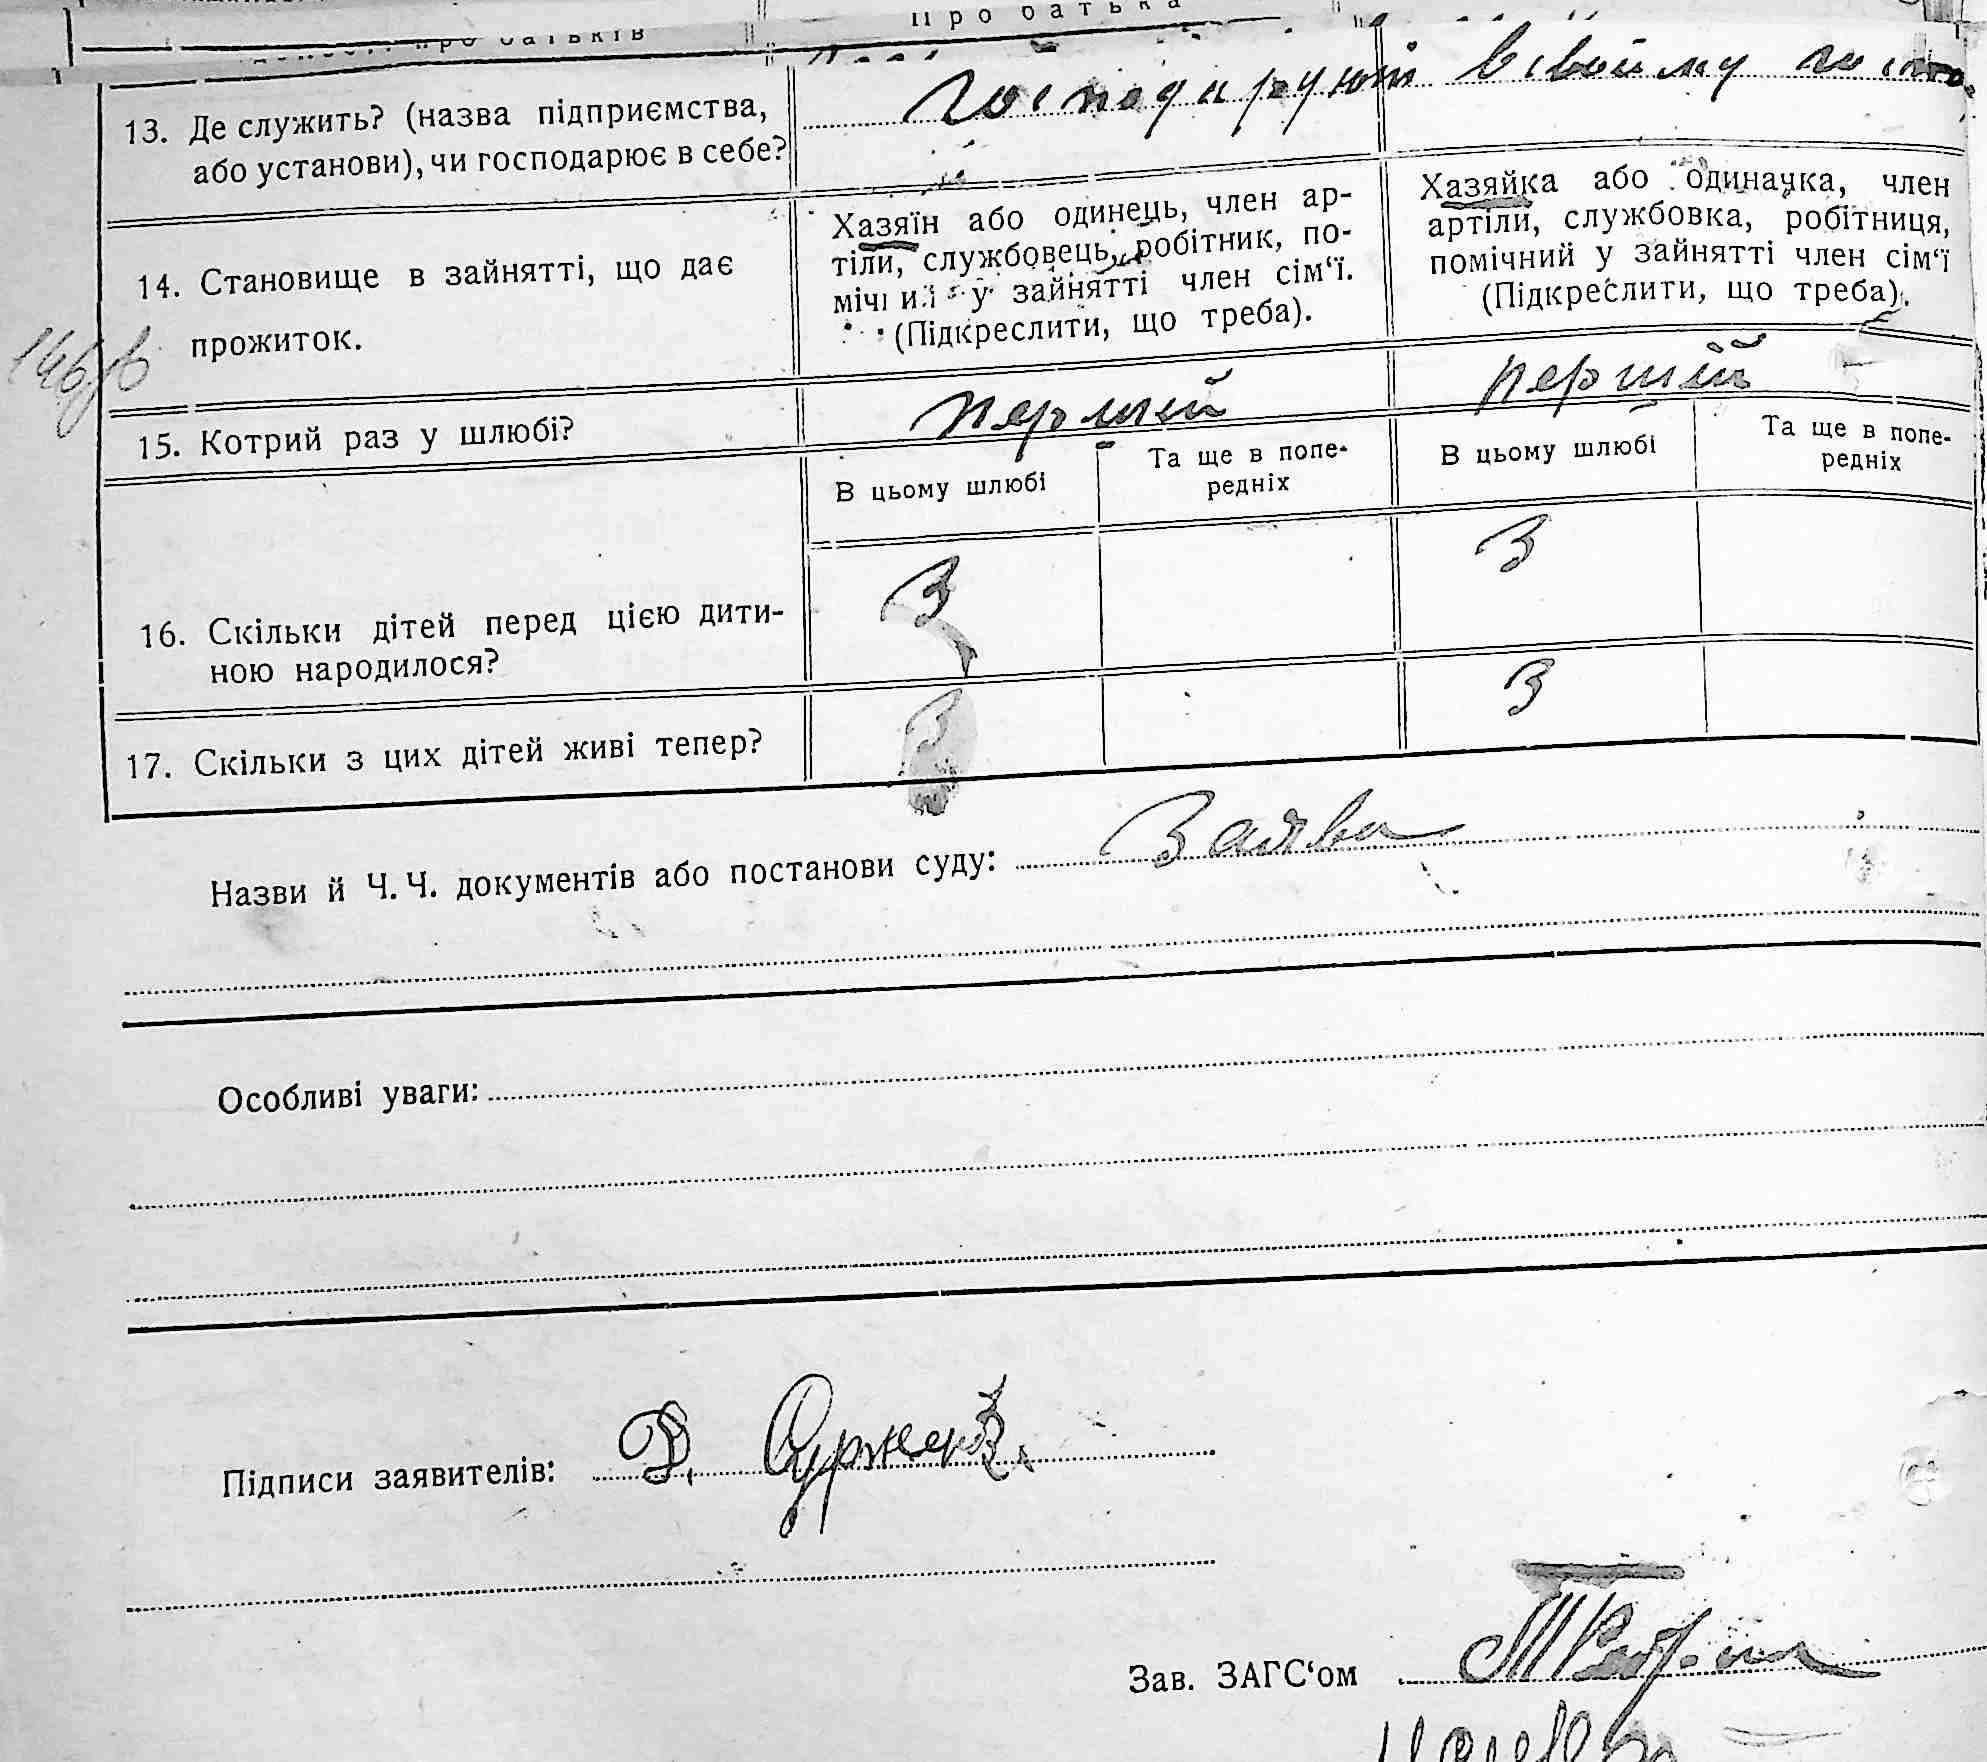 Про батька
про батьків
13. Де служить? (назва підприємства,
або установи), чи господарює в себе?
господарують в свойму
14. Становище в зайнятті, що дає
прожиток.
Хазяїн або одинець, член ар-
тіли, службовець, робітник, по-
мічний у зайнятті член сім‘ї.
(Підкреслити, що треба).
Хазяйка або одиначка, член
артіли, службовка, робітниця,
помічний у зайнятті член сім‘ї
(Підкреслити, що треба).
15. Котрий раз у шлюбі?
перший
перший
В цьому шлюбі
Та ще в попе-
редніх
В цьому шлюбі
Та ще в попе-
редніх
16. Скільки дітей перед цією дити-
ною народилося?
3
3
17. Скільки з цих дітей живі тепер?
3
3
Назви й Ч. Ч. документів або постанови суду: Заява
Особливі уваги:
Підписи заявителів:
Зав. ЗАГС‘ом